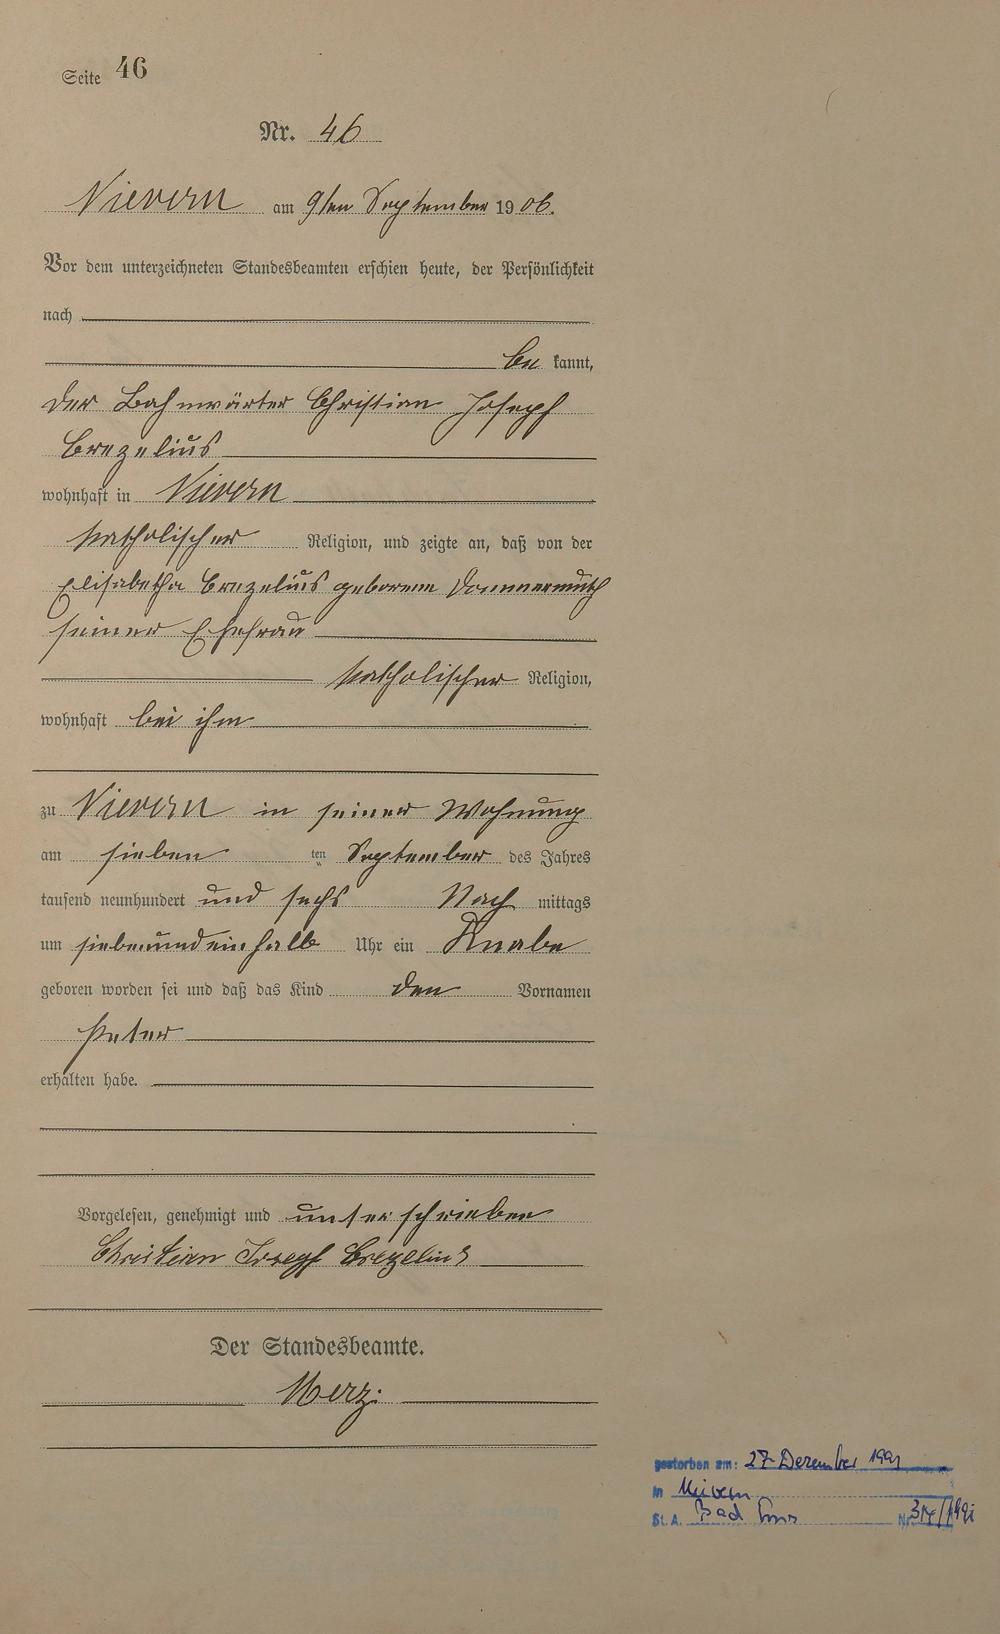 Seite 46
Nr. 46
Nievern am 9ten September 1906.
Vor dem unterzeichneten Standesbeamten erschien heute, der Persönlichkeit
nach
be kannt,
der Bahnwärter Christian Joseph
Brezelius
wohnhaft in Nievern
katholischer Religion, und zeigte an, daß von der
Elisabetha Brezelius geborene Donnermuth
seiner Ehefrau
katholischer Religion,
wohnhaft bei ihm
zu Nievern in seiner Wohnung
am sieben ten September des Jahres
tausend neunhundert und sechs Nach mittags
um siebenundeinhalb Uhr ein Knabe
geboren worden sei und daß das Kind den Vornamen
Peter
erhalten habe.
Vorgelesen, genehmigt und unterschrieben
Christian Josepf Brezelius
Der Standesbeamte.
Merz.
gestorben am: 27 Dezember 1991
in Nievern
St. A. Bad Ems Nr.